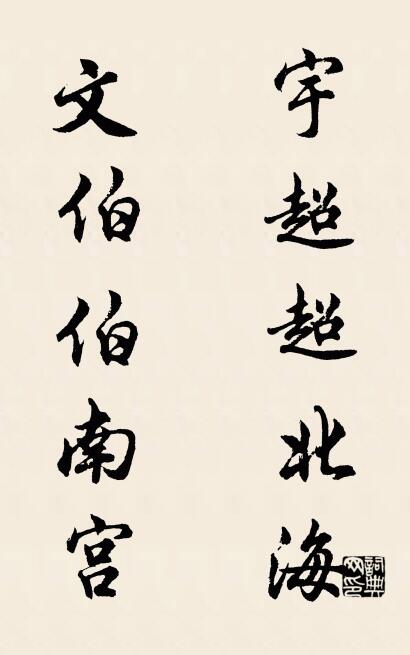 宇超超北海
文伯伯南宫
词典网印